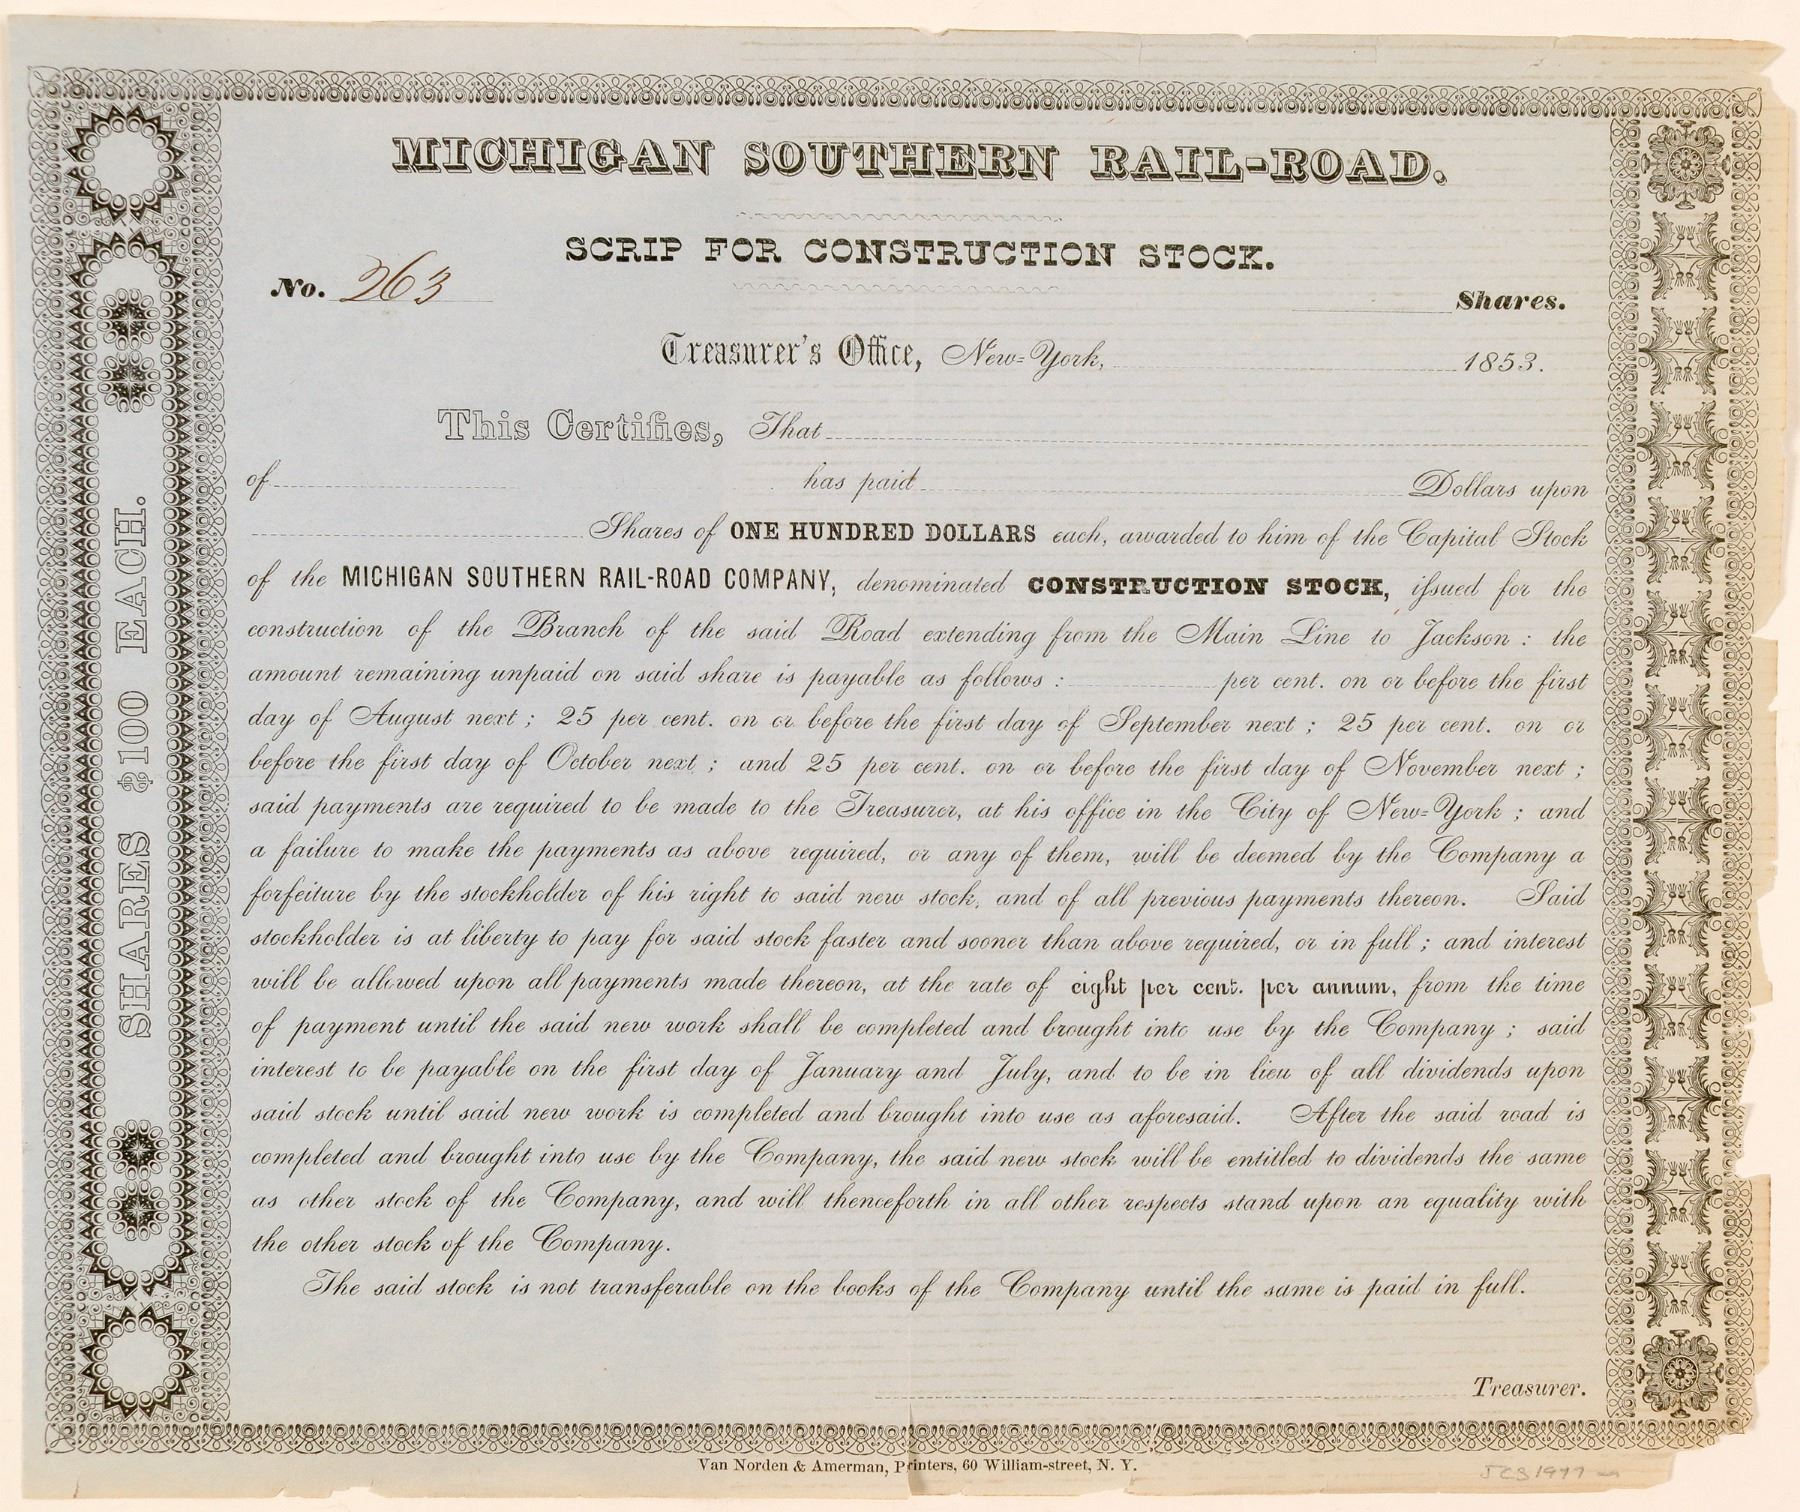 MICHIGAN SOUTHERN RAIL-ROAD.
SCRIP FOR CONSTRUCTION STOCK.
No. 263
Shares.
Treasurer's Office, New-York, 1853.
This Certifies, That
of has paid Dollars upon
Shares of ONE HUNDRED DOLLARS each, awarded to him of the Capital Stock
of the MICHIGAN SOUTHERN RAIL-ROAD COMPANY, denominated CONSTRUCTION STOCK, issued for the
construction of the Branch of the said Road extending from the Main Line to Jackson : the
amount remaining unpaid on said share is payable as follows : per cent. on or before the first
day of August next ; 25 per cent. on or before the first day of September next ; 25 per cent. on or
before the first day of October next ; and 25 per cent. on or before the first day of November next ;
said payments are required to be made to the Treasurer, at his office in the City of New-York ; and
a failure to make the payments as above required, or any of them, will be deemed by the Company a
forfeiture by the stockholder of his right to said new stock, and of all previous payments thereon. Said
stockholder is at liberty to pay for said stock faster and sooner than above required, or in full ; and interest
will be allowed upon all payments made thereon, at the rate of eight per cent. per annum, from the time
of payment until the said new work shall be completed and brought into use by the Company ; said
interest to be payable on the first day of January and July, and to be in lieu of all dividends upon
said stock until said new work is completed and brought into use as aforesaid. After the said road is
completed and brought into use by the Company, the said new stock will be entitled to dividends the same
as other stock of the Company, and will thenceforth in all other respects stand upon an equality with
the other stock of the Company.
The said stock is not transferable on the books of the Company until the same is paid in full.
Treasurer.
SHARES $100 EACH.
Van Norden & Amerman, Printers, 60 William-street, N. Y.